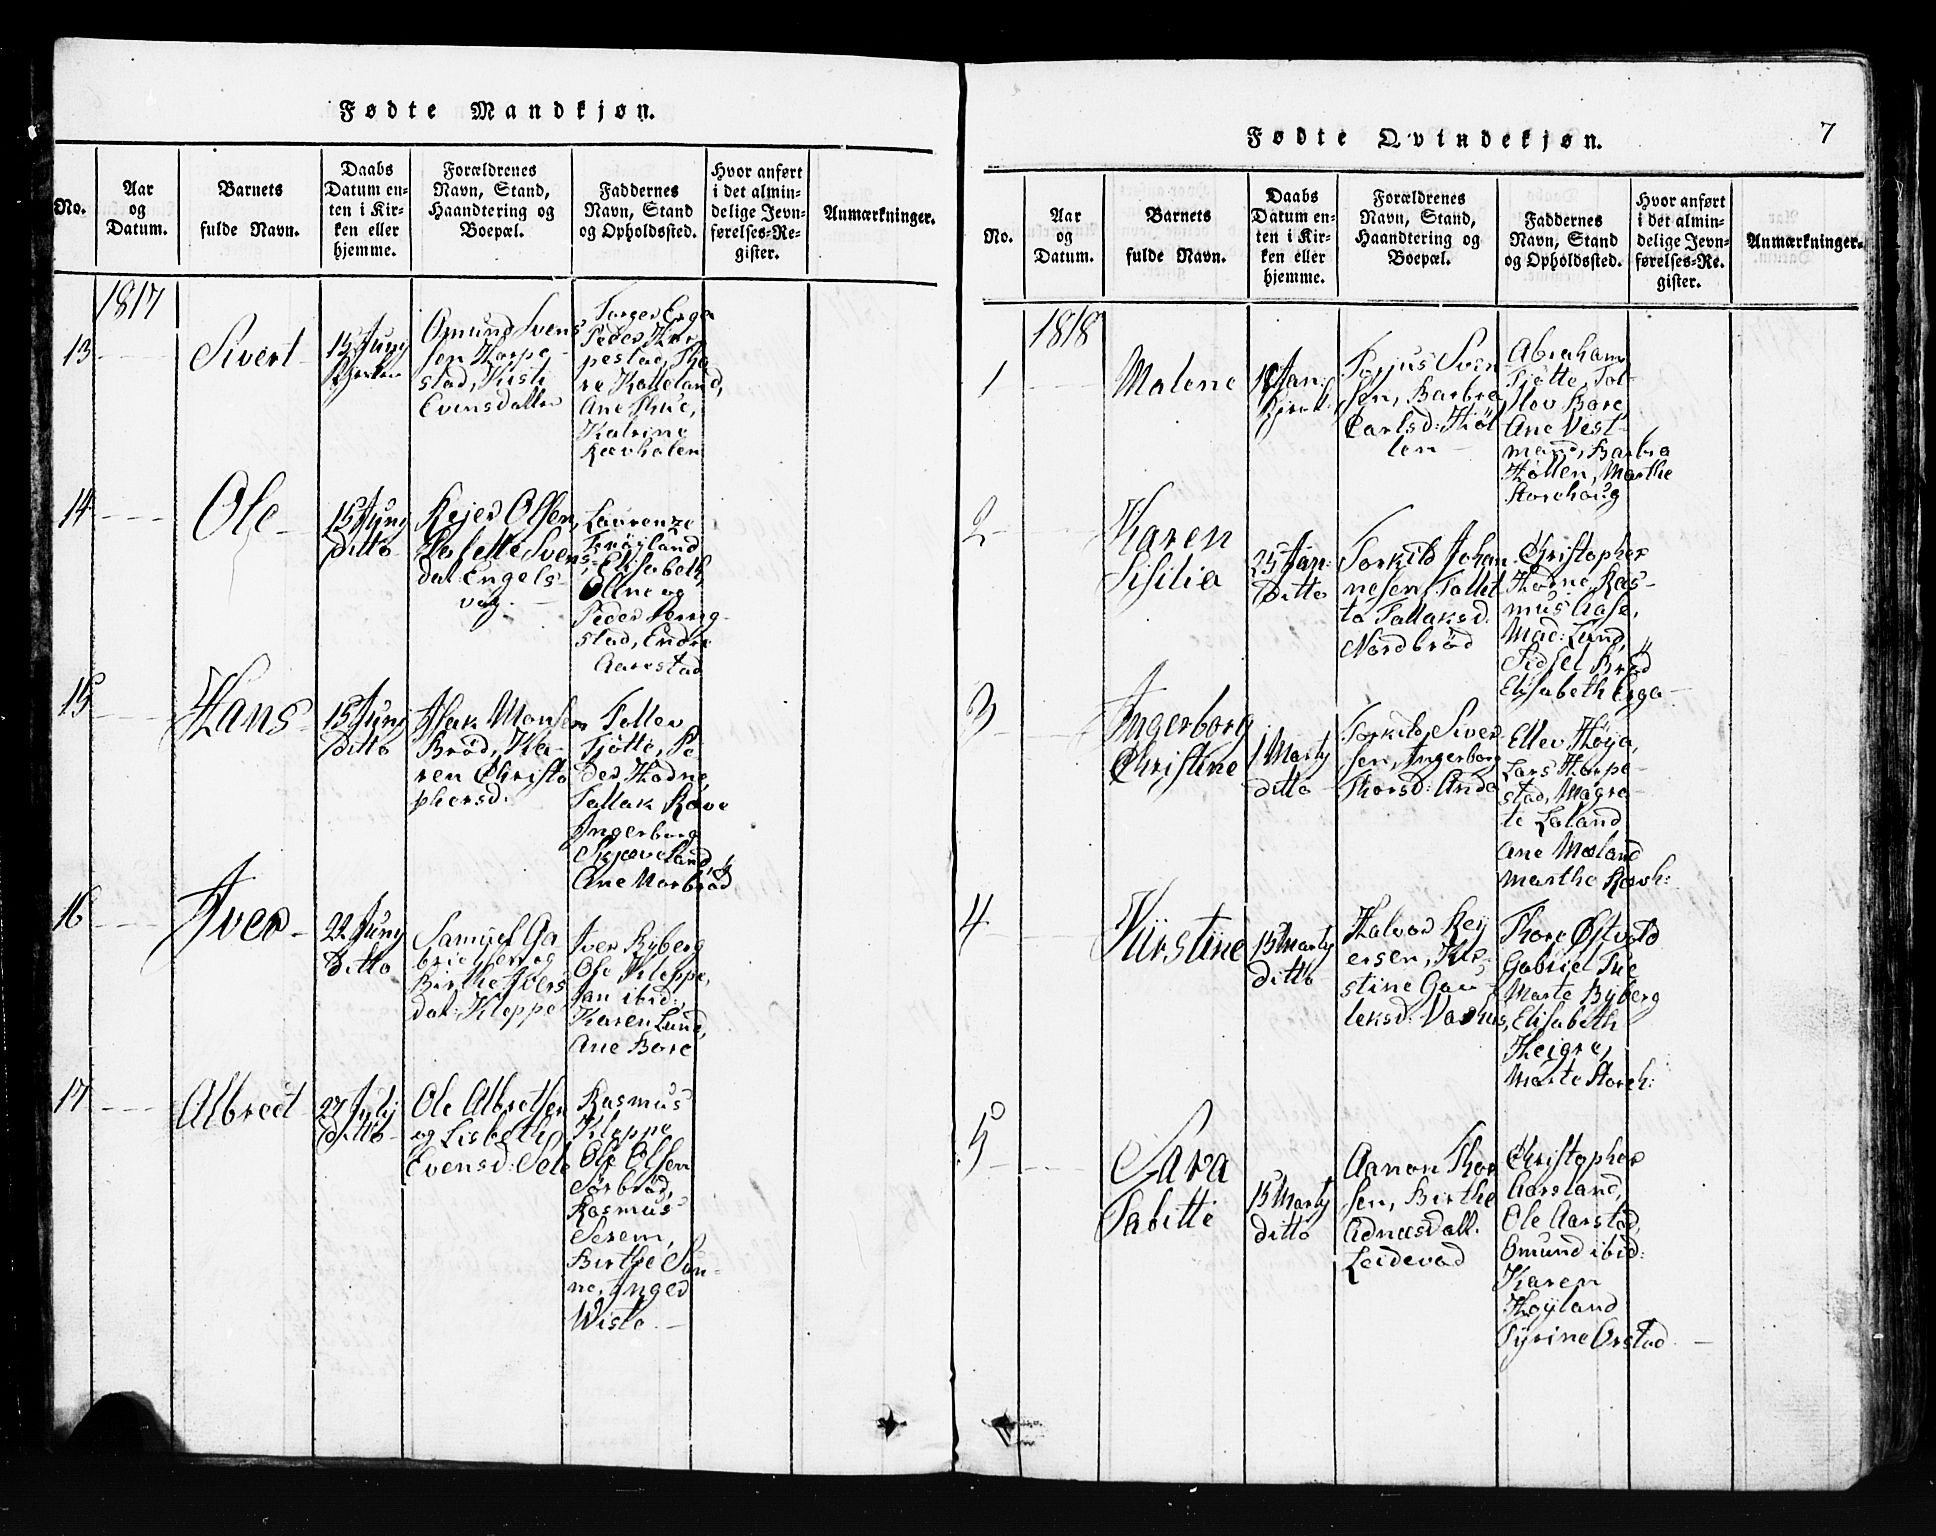 Fødte Mandkjøn.
No.
Aar
og
Datum.
Barnets
fulde Navn.
Daabs
Datum en-
ten i Kir-
ken eller
hjemme.
Forældrenes
Navn, Stand,
Haandtering og
Boepæl.
Faddernes
Navn, Stand
og Opholdssted.
Hvor anført
i det almin-
delige Jevn-
førelses-Re-
gister.
Anmærkninger.
1817
13
Sivert
15 Juny
Omund Svens
sen Horpe-
stad, Kisti
Evensdatter
Torger Erga
Peder Hor
pestad, Tho
re Kolleland,
Ane Thue,
Katrine
Rævholen
14
Ole
15 Juny
Ditto
Rejer Olsen,
Svens
dat: Engels-
våg.
Laurenze
Frøyland
Elisabeth
Olne og
Peder
stad, Endre
Aarestad
15
Hans
15 Juny
Ditto
Isak Monsen
Brød, Ka-
ren Christo
phersd.
Tollev
Tjøtte, Pe
der Hodne,
Tollak Røve
Ingerborg
Skjæveland,
Ane Norbrød
16
Iver
22 Juny
Ditto
Samuel Ga
briels og
Birthe Ivers
dat: Kleppe
Iver Byberg
Ole Kleppe,
Jan ibid:,
Karen Lund,
Ane Bore
17
Albrect
27 July
Ditto
Ole Albretsen
og Lisbeth
Evensd: Sele
Rasmus
Kleppe
Ole Olsen
Sørbrød,
Rasmus
Serem,
Birthe Sun-
ne, Inger
Wiste
7
Fødte Qvindekjøn.
No.
Aar
og
Datum.
Barnets
fulde Navn.
Daabs
Datum en-
ten i Kir-
ken eller
hjemme.
Forældrenes
Navn, Stand,
Haandtering og
Boepæl.
Faddernes
Navn, Stand
og Opholdssted.
Hvor anført
i det almin-
delige Jevn-
førelses-Re-
gister.
Anmærkninger.
1818
1
Malene
18 Jan:
Torjus Sven
sen, Barbra
Carlsd: Høl
len
Abraham
Tjøtte, Tol-
lev Bore,
Ane Vest
mand, Barbra
Höllen, Marthe
Storehoug
2
Karen
Sisilia
25 Jan:
Ditto
Torkild Johan
nesen,
Tollaksd.
Nordbrød
Christopher
Hodne, Ras-
mus Aase,
Mad: Lund,
Sidsel Brød
Elisabeth Erga
3
Ingerborg
Christine
1 Marty
ditto
Torkild Siver
sen, Ingerborg
Thorsd: Anda
Ellev Høya,
Lars Horpe-
stad, Magre-
te Laland
Ane Mæland
Marthe Rævh:
4
Kirstine
15 Marty
ditto
Halvor Rey
ersen, Kir-
stine Gau
leksd: Vashus
Thore Østvold
Gabriel Tue
Marte Byberg
Elisabeth
Heigre,
Marte Storeh:
5
Sara
Tabitte
15 Marty
ditto
Aanon Thor
sen, Birthe
Adnæsdatt.
Leidevad
Christopher
Aarsland,
Ole Aarstad,
Omund ibid:
Karen
Høyland
Tyrine Orstad